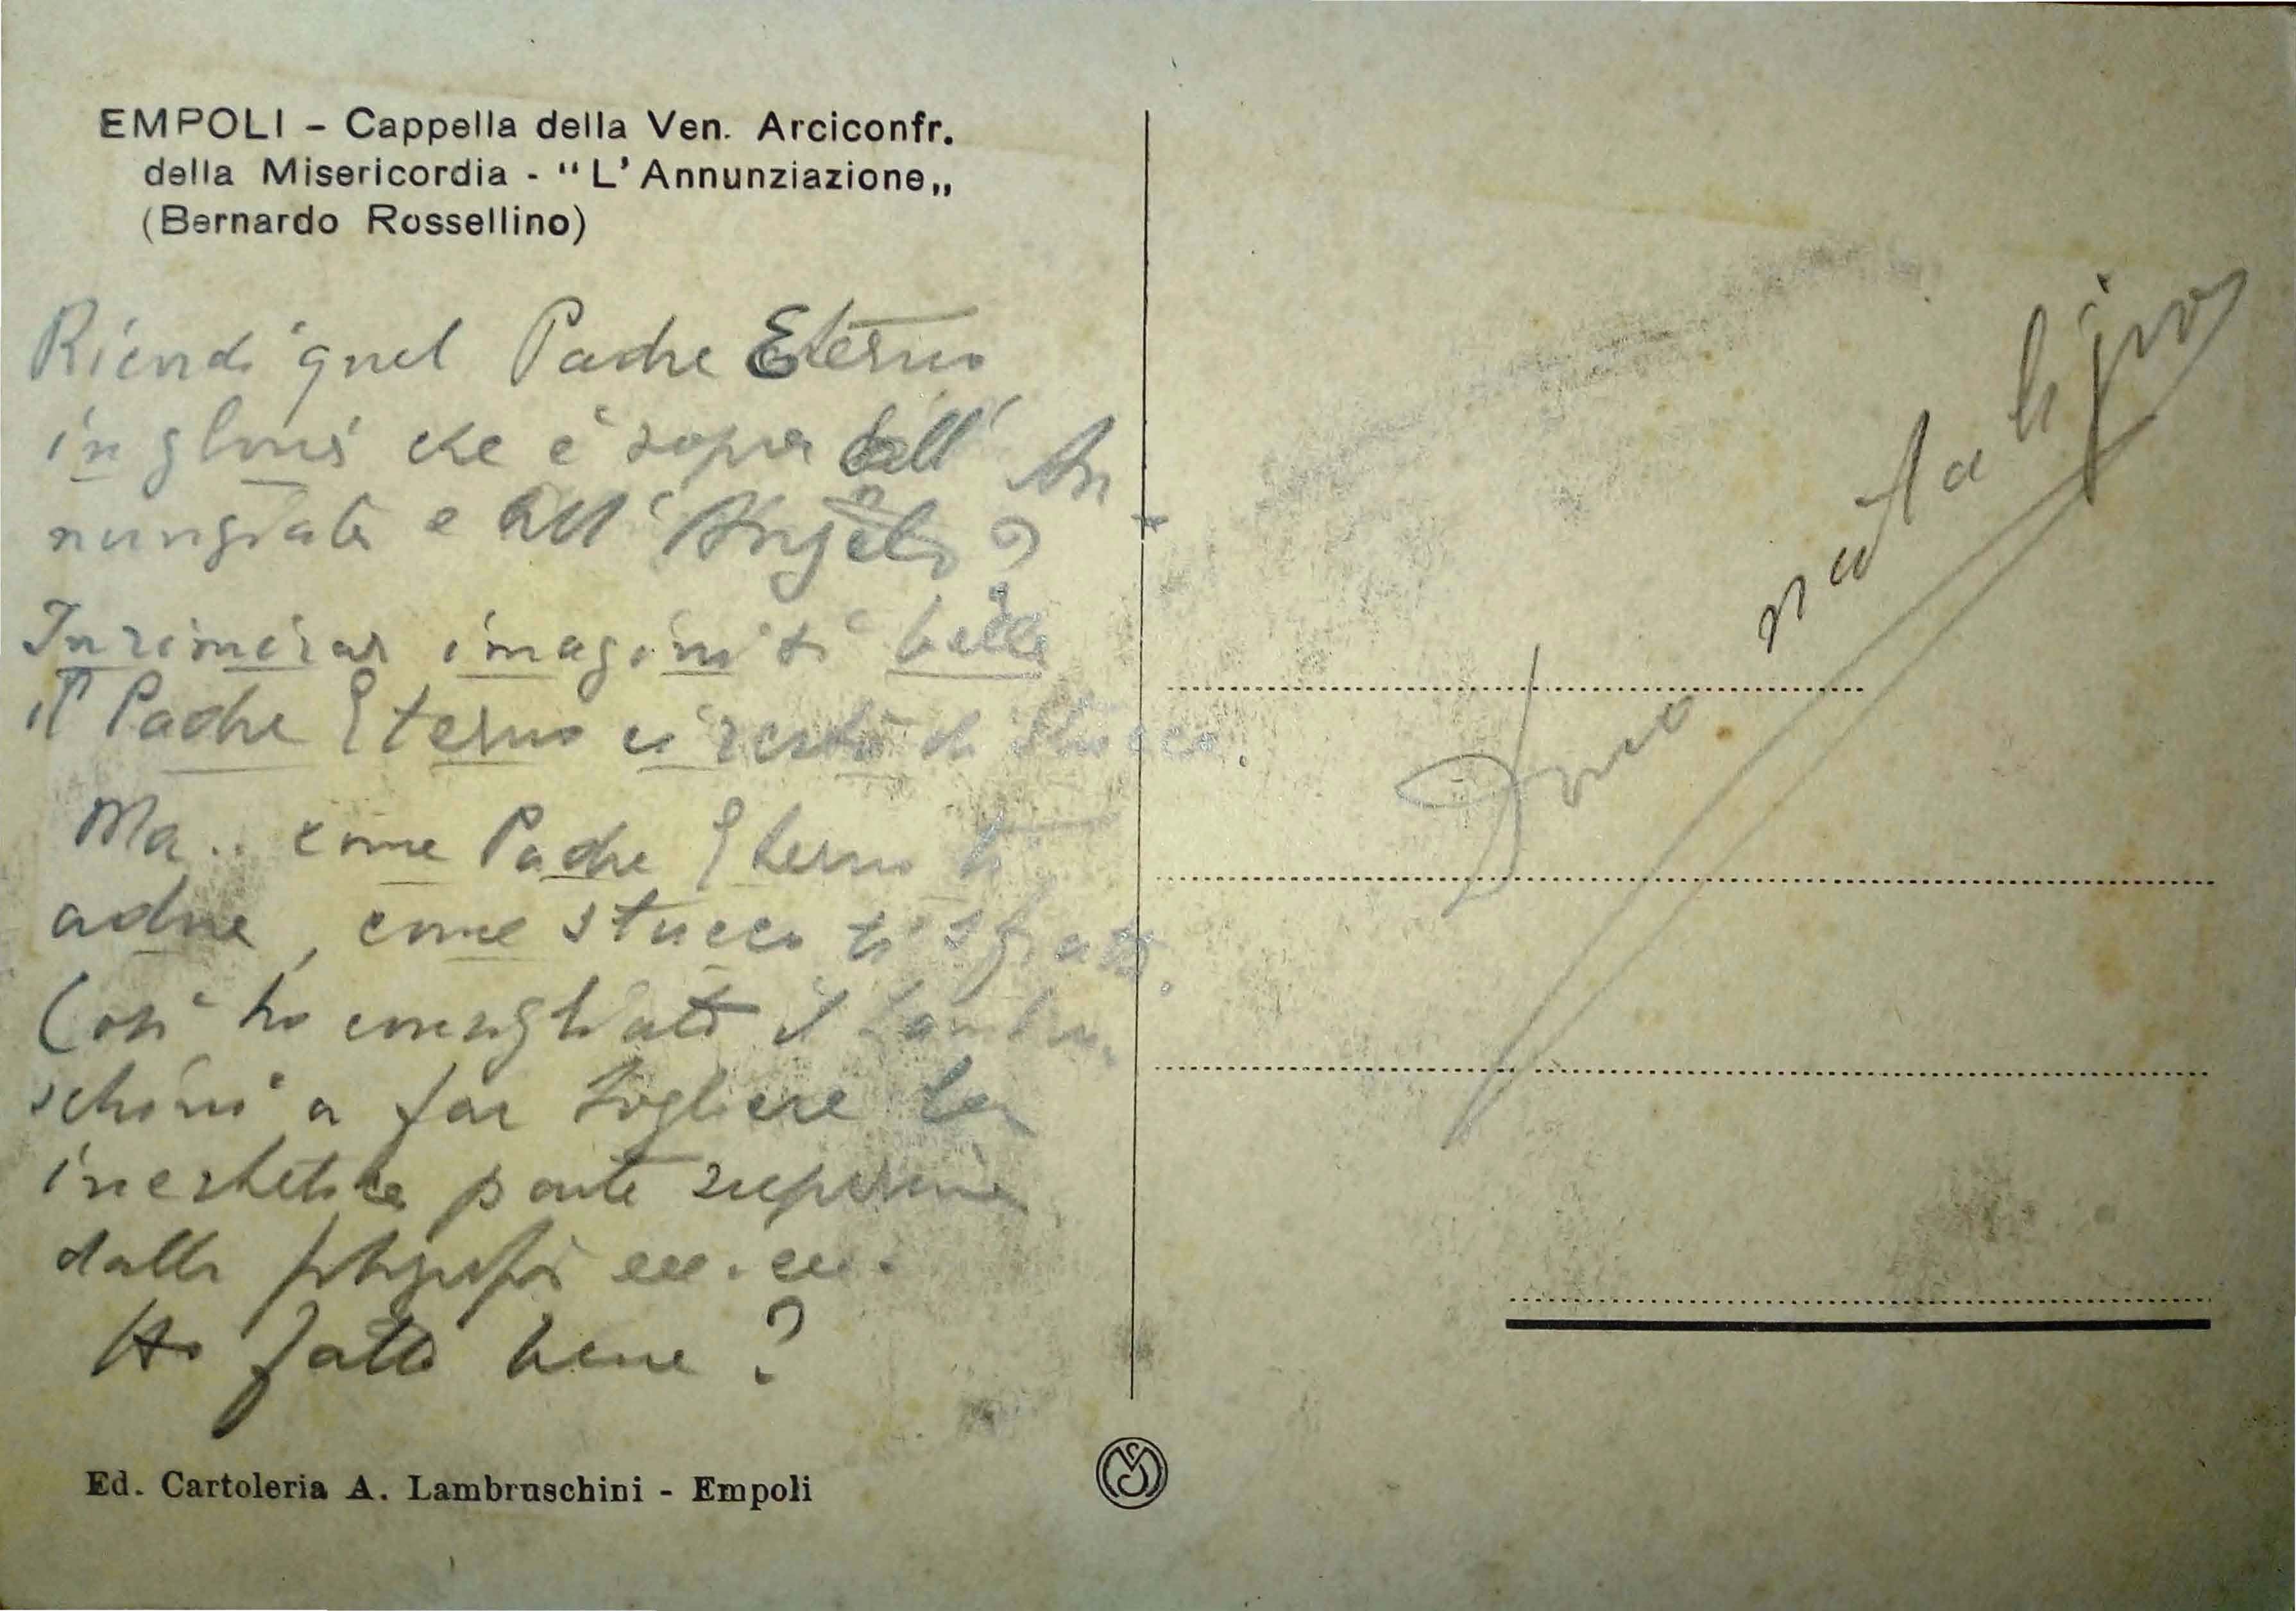 EMPOLI - Cappella della Ven. Arciconfr.
della Misericordia - "L'Annunziazione„
(Bernardo Rossellino)
quel Padre Eterno
in gloria che è sopra all' An
nunziata e all' Angelo?
imagini sì belle
il Padre Eterno ci restò di stucco.
Ma.. come Padre Eterno ti
adoro, come stucco ti sfratto.
Così ho consigliato il Lambru-
schini a far togliere la
inestetica parte superiore
dalla fotografia ecc. ecc.
Ho fatto bene?
Ed. Cartoleria A. Lambruschini - Empoli